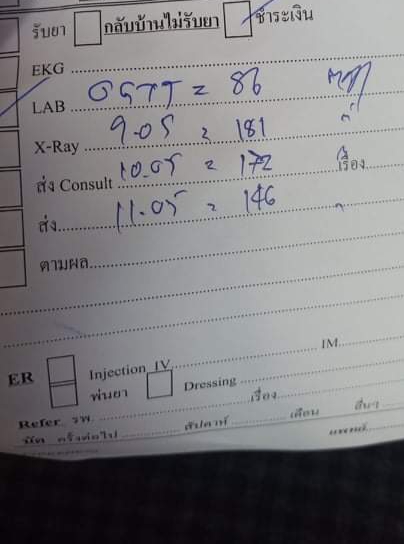 รับยา กลับบ้านไม่รับยา ชำระเงิน
EKG
LAB OGTT = 86
X-Ray 9.05 = 181
ส่ง Consult 10.05 = 172 เรื่อง
ส่ง 11.05 = 146
ตามผล
ER Injection IV IM
พ่นยา Dressing
Refer รพ. เรื่อง
นัด ครั้งต่อไป สัปดาห์ เดือน อื่นๆ
แพทย์